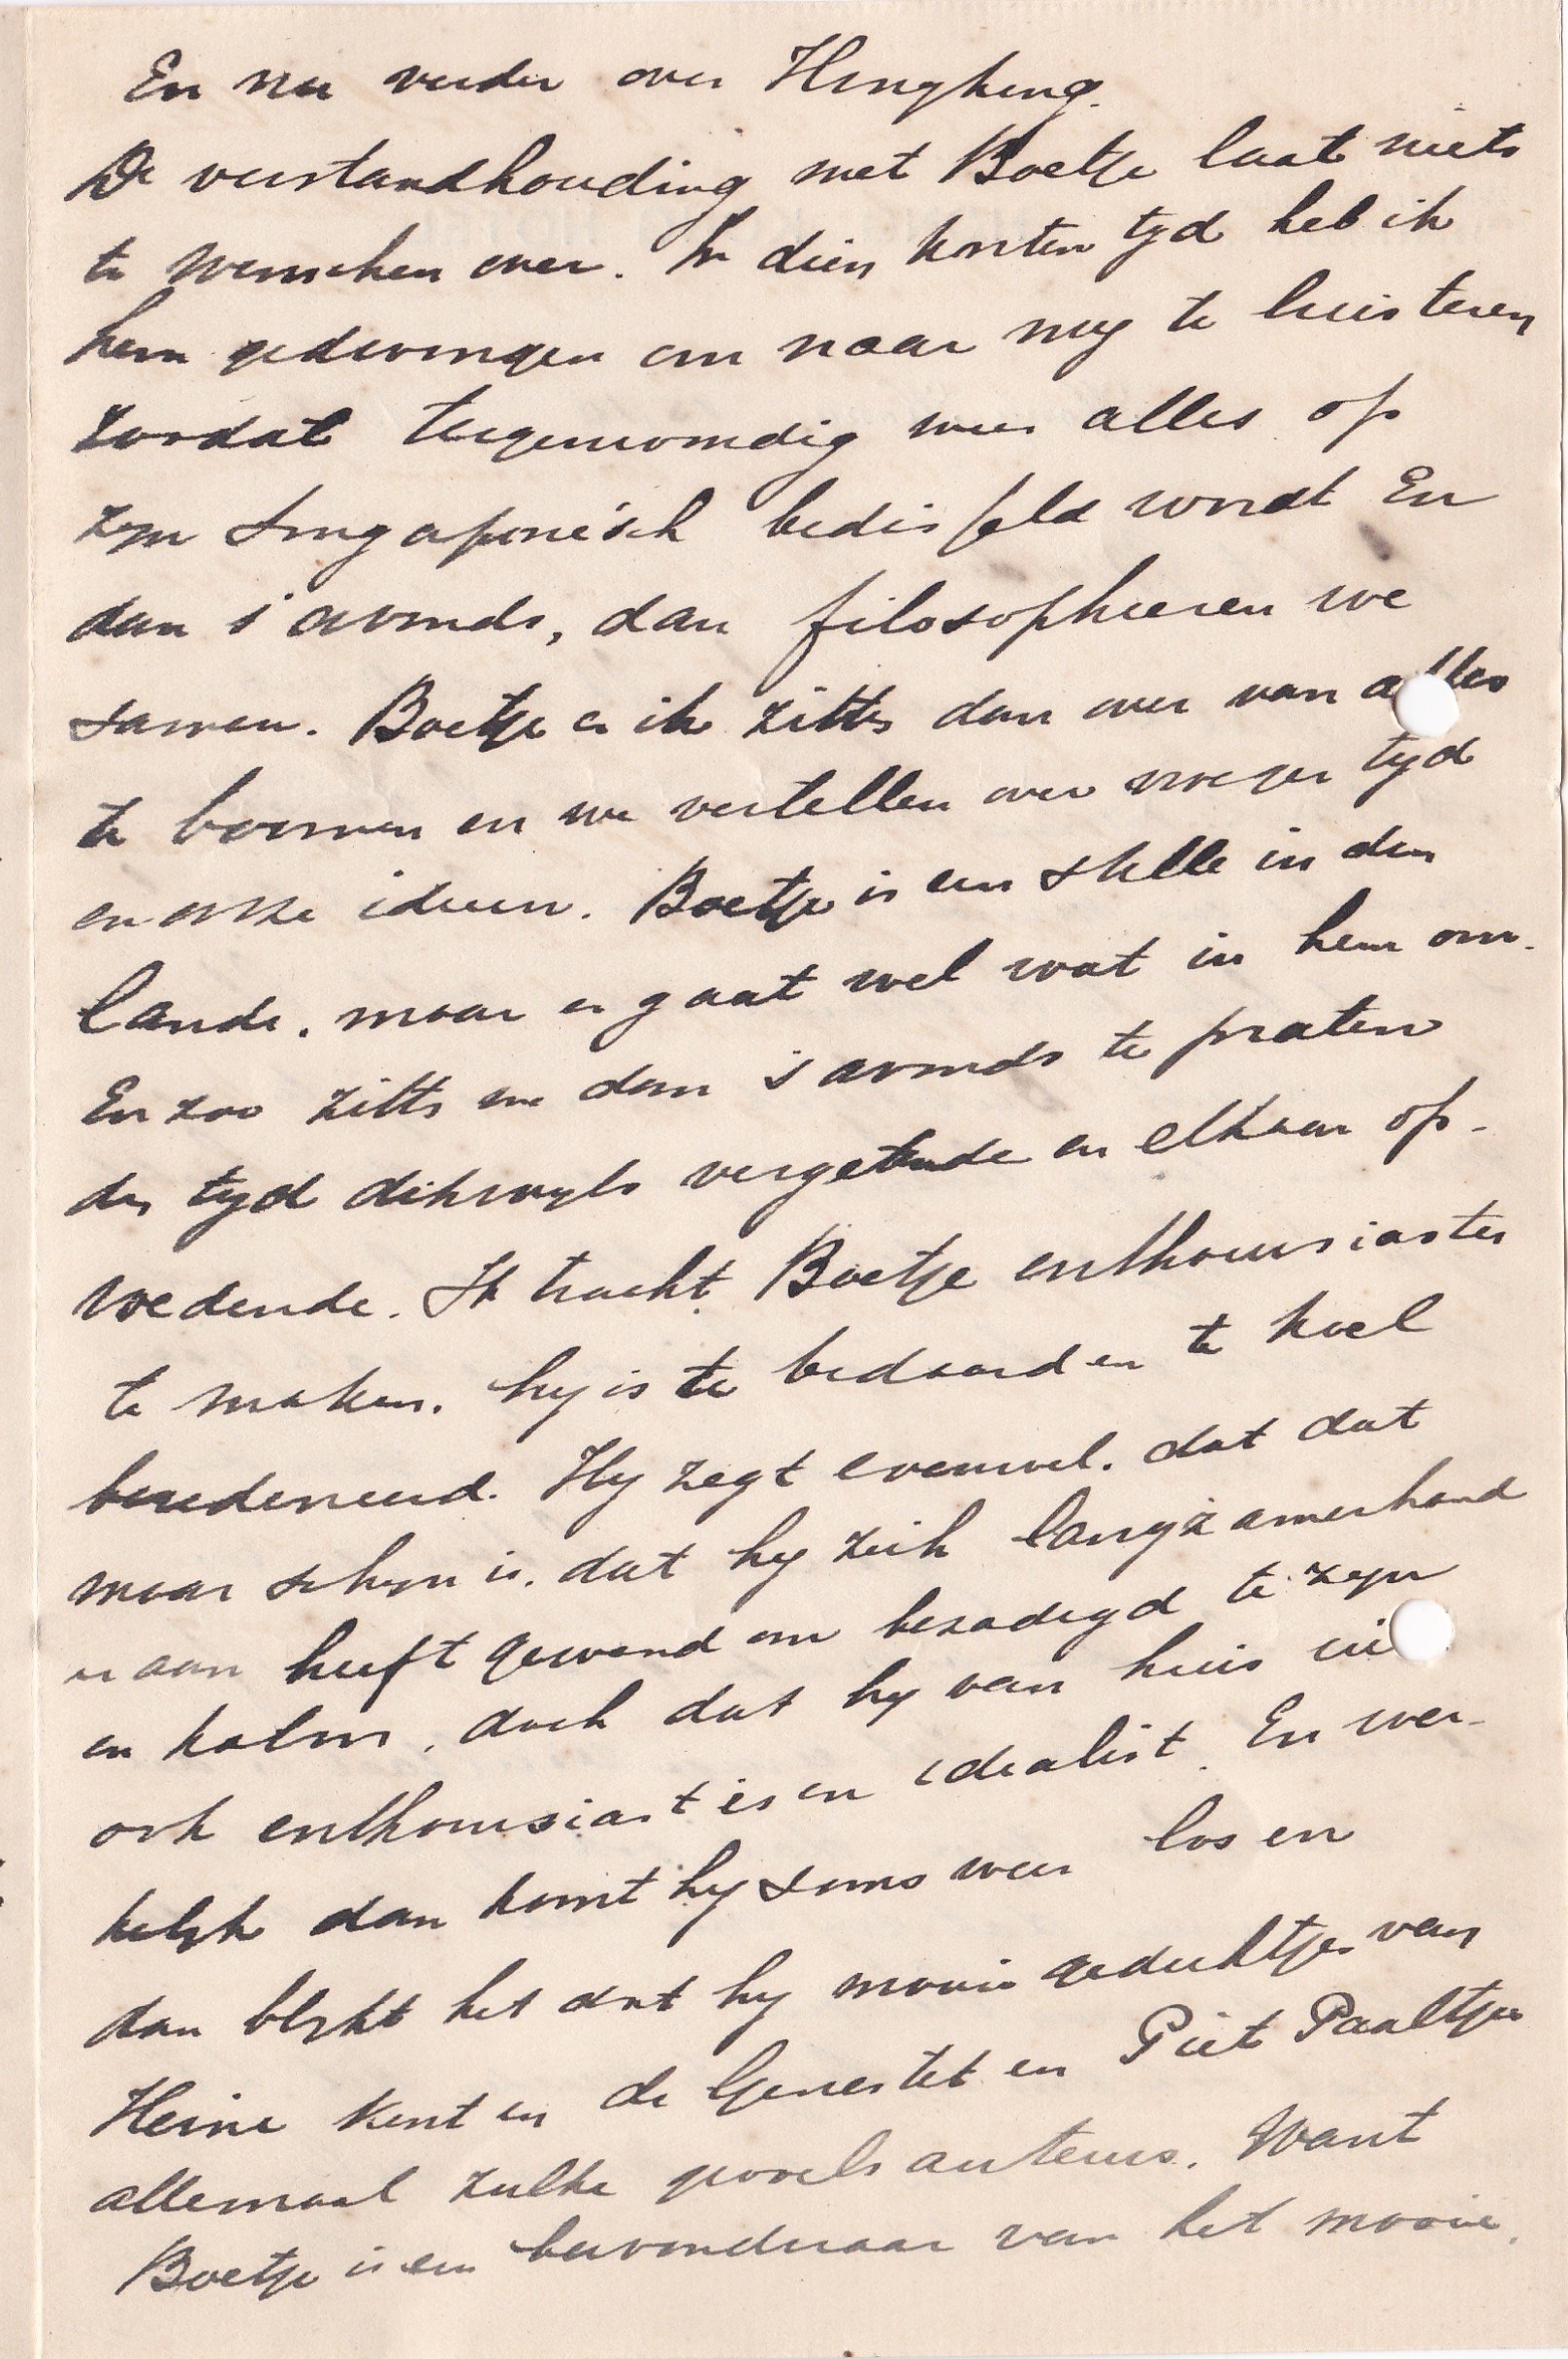 En nu verder over Hengkeng.
De verstandhouding met Boetje laat niets
te wenschen over. In dien korten tyd heb ik
hem gedwongen om naar my te luisteren
zoodat tegenwoordig weer alles op
zyn Singaporeësch bedisfeld wordt En
dan s' avonds, dan filosopheeren we
samen. Boetje en ik zitten dan over van alles
te boomen en we vertellen over vroeger tyd
en onze ideeen. Boetje is een stille in den
lande. maar er gaat wel wat in hem om.
En zoo zitten we dan 's avonds te praten
den tyd dikwyls vergetende en elkaar op-
windende. Ik tracht Boetje enthousiaster
te maken. hy is te bedaard en te koel
beredeneerd. Hy zegt evenwel. dat dat
maar schyn is. dat hy zich langzamerhand
er aan heeft gewend om bezadigd te zyn
en kalm, doch dat hy van huis uit
ook enthousiast is en idealist. En wer-
kelyk dan komt hy soms weer los en
dan blykt het dat hy mooie gedichtjes van
Heine kent en de Genestet en Piet Paaltjes
allemaal zulke gevoels auteurs. Want
Boetje is een bewonderaar van het mooie.